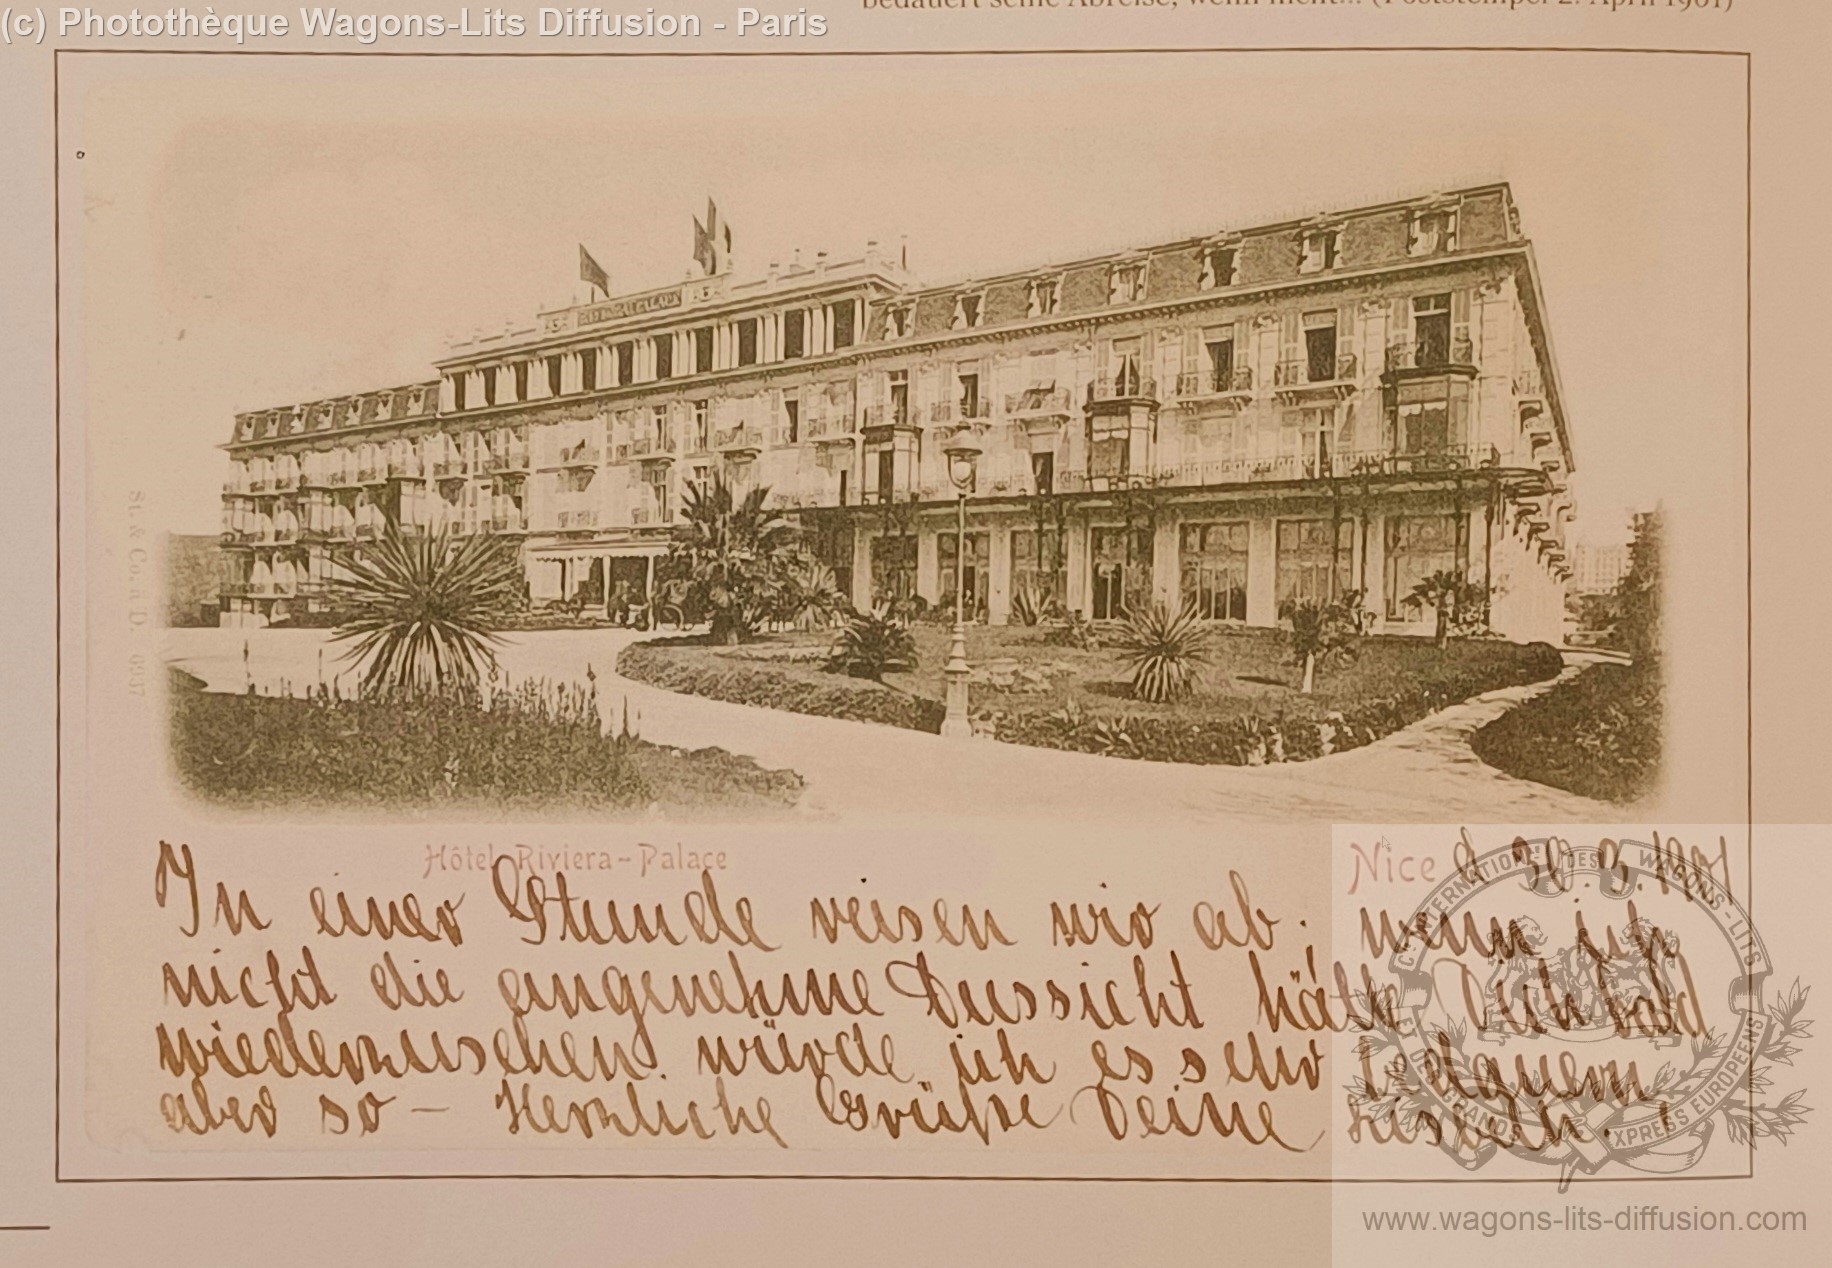 (c) Photothèque Wagons-Lits Diffusion - Paris
bedauert seine Abreise, wenn nicht... (Poststempel 2. April 1901)
St. & Co. D. 6937
Hôtel Riviera-Palace
Nice d. 30.3.1901
In einer Stunde reisen wir ab; wenn ich
nicht die angenehme Aussicht hätte Dich bald
wiederzusehen würde ich es sehr
aber so — Herzliche Grüße Deine
Cie INTERNATIONALE DES WAGONS-LITS
ET DES GRANDS EXPRESS EUROPÉENS
www.wagons-lits-diffusion.com